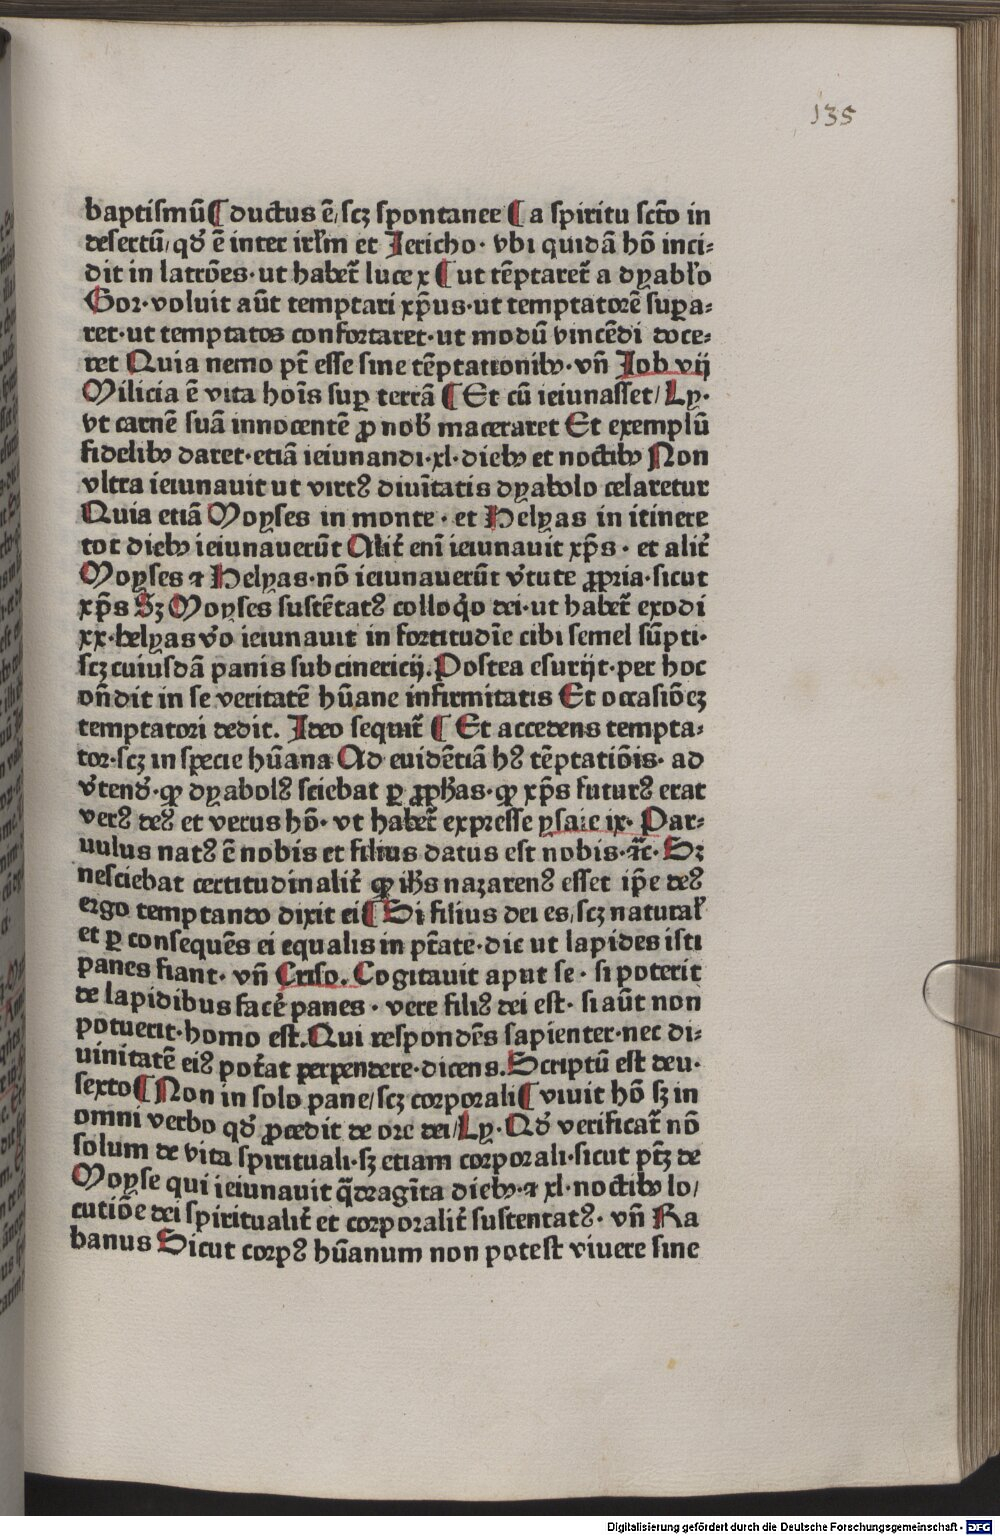 135
baptismū ¶ ductus ē/ scꝫ spontanee ¶ a spiritu scto in
desertū/ qd̓ ē inter irl̓m et Jericho· vbi quidā hō inci⸗
dit in latrões· ut habet̃ luce x ¶ ut tēptaret̃ a dyablo
Gor· voluit aūt temptari xp̄us· ut temptatorē suꝑa⸗
ret· ut temptatos confortaret· ut modū vincēdi doce⸗
ret Quia nemo pt̄ esse sine tēptationibꝰ· vn̄ Job vij
Milicia ē vita hoīs suꝑ terrā ¶ Et cū ieiunasset/ Ly·
vt carnē suā innocentē ꝓ nob̓ maceraret Et exemplū
fidelibꝰ daret· etiā ieiunandi· xl· diebꝰ et noctibꝰ Non
vltra ieiunauit ut virtꝰ diuītatis dyabolo celaretur
Quia etiā Moyses in monte · et Helyas in itinere
tot diebꝰ ieiunauerūt Alit̓ enī ieiunauit xp̄s · et alit̓
Moyses ⁊ Helyas· nō ieiunauerūt v̓tute ꝓpria· sicut
xp̄s Sꝫ Moyses sustētatꝰ colloq̊ dei· ut habet̃ exodi
xx· helyas v̊o ieiunauit in fortitudīe cibi semel sūpti·
scꝫ cuiusdā panis subcinericij. Postea esurijt· per hoc
on̄dit in se veritatē hūane infirmitatis Et occasiõeꝫ
temptatori dedit. Ideo sequit̃ ¶ Et accedens tempta⸗
tor· scꝫ in specie hūana Ad euidētiā hꝰ tēptatiõis· ad
v̓tend̓· ꝙ dyabolꝰ sciebat ꝑ ꝓph̄as· ꝙ xp̄s futurꝰ erat
verꝰ deꝰ et verus hō· vt habet̃ expresse ysaie ix· Par⸗
uulus natꝰ ē nobis et filius datus est nobis· ⁊c̄· Sꝫ
nesciebat certitudinalit̓ ꝙ ih̄s nazarenꝰ esset ip̄e deꝰ
ergo temptando dixit ei ¶ Si filius dei es/ scꝫ natural̓
et ꝑ consequēs ei equalis in pt̄ate· dic ut lapides isti
panes fiant· vn̄ Criso. Cogitauit aput se · si poterit
de lapidibus facē panes · vere filiꝰ dei est· si aūt non
potuerit· homo est. Qui respondēs sapienter· nec di⸗
uinitatē eiꝰ pot̓at perpendere· dicens. Scriptū est deu·
sexto ¶ Non in solo pane/ scꝫ corporali ¶ viuit hō sꝫ in
omni verbo qd̓ ꝓcedit de ore dei/ Ly· Qd̓ verificat̃ nō
solum de vita spirituali· sꝫ etiam corporali· sicut ptꝫ de
Moyse qui ieiunauit q̄dragīta diebꝰ· ⁊ xl· noctibꝰ lo/
cutiõe dei spiritualit̓ et corporalit̓ sustentatꝰ· vn̄ Ra
banus Sicut corpꝰ hūanum non potest viuere sine
Digitalisierung gefördert durch die Deutsche Forschungsgemeinschaft - DFG